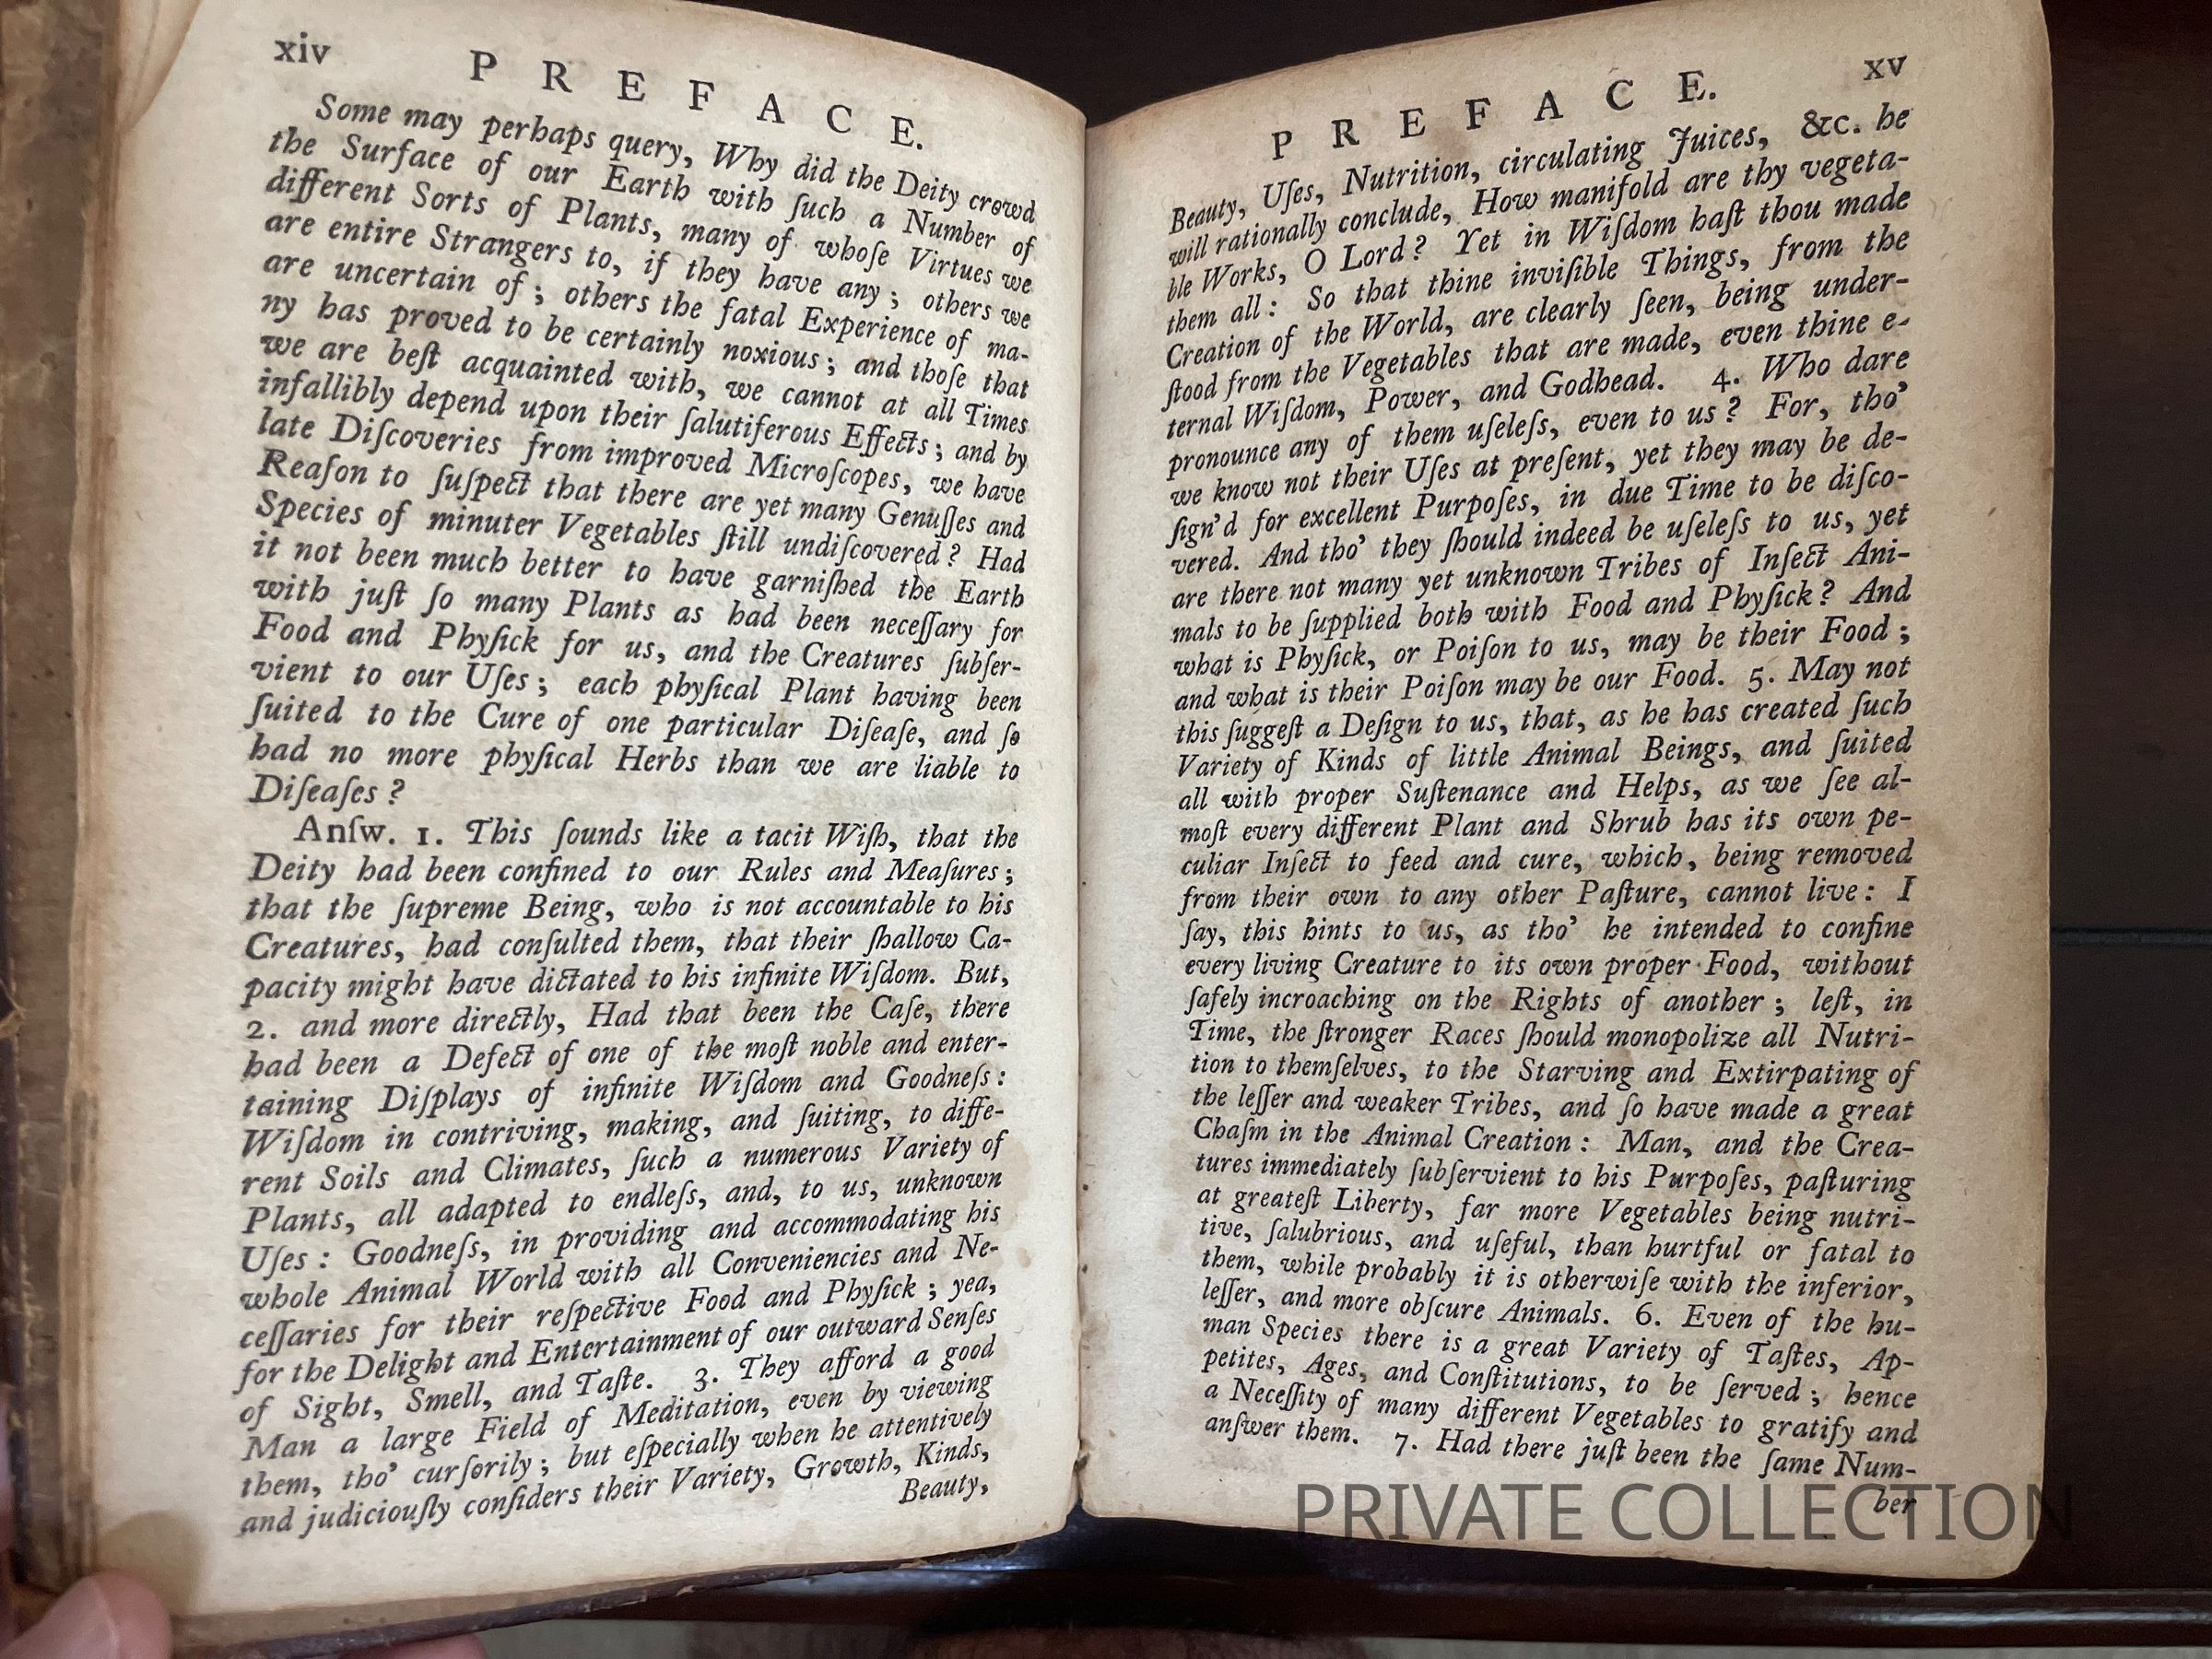 xiv
PREFACE.
Some may perhaps query, Why did the Deity crowd
the Surface of our Earth with ſuch a Number of
different Sorts of Plants, many of whoſe Virtues we
are entire Strangers to, if they have any; others we
are uncertain of; others the fatal Experience of ma-
ny has proved to be certainly noxious; and thoſe that
we are beſt acquainted with, we cannot at all Times
infallibly depend upon their ſalutiferous Effects; and by
late Diſcoveries from improved Microſcopes, we have
Reaſon to ſuſpect that there are yet many Genuſſes and
Species of minuter Vegetables ſtill undiſcovered? Had
it not been much better to have garniſhed the Earth
with juſt ſo many Plants as had been neceſſary for
Food and Phyſick for us, and the Creatures ſubſer-
vient to our Uſes; each phyſical Plant having been
ſuited to the Cure of one particular Diſeaſe, and ſo
had no more phyſical Herbs than we are liable to
Diſeaſes?
Anſw. 1. This ſounds like a tacit Wiſh, that the
Deity had been confined to our Rules and Meaſures;
that the ſupreme Being, who is not accountable to his
Creatures, had conſulted them, that their ſhallow Ca-
pacity might have dictated to his infinite Wiſdom. But,
2. and more directly, Had that been the Caſe, there
had been a Defect of one of the moſt noble and enter-
taining Diſplays of infinite Wiſdom and Goodneſs:
Wiſdom in contriving, making, and ſuiting, to diffe-
rent Soils and Climates, ſuch a numerous Variety of
Plants, all adapted to endleſs, and, to us, unknown
Uſes: Goodneſs, in providing and accommodating his
whole Animal World with all Conveniencies and Ne-
ceſſaries for their reſpective Food and Phyſick; yea,
for the Delight and Entertainment of our outward Senſes
of Sight, Smell, and Taſte. 3. They afford a good
Man a large Field of Meditation, even by viewing
them, tho' curſorily; but eſpecially when he attentively
and judiciouſly conſiders their Variety, Growth, Kinds,
Beauty,
PREFACE.
xv
Beauty, Uſes, Nutrition, circulating Juices, &c. he
will rationally conclude, How manifold are thy vegeta-
ble Works, O Lord? Yet in Wiſdom haſt thou made
them all: So that thine inviſible Things, from the
Creation of the World, are clearly ſeen, being under-
ſtood from the Vegetables that are made, even thine e-
ternal Wiſdom, Power, and Godhead. 4. Who dare
pronounce any of them uſeleſs, even to us? For, tho'
we know not their Uſes at preſent, yet they may be de-
ſign'd for excellent Purpoſes, in due Time to be diſco-
vered. And tho' they ſhould indeed be uſeleſs to us, yet
are there not many yet unknown Tribes of Inſect Ani-
mals to be ſupplied both with Food and Phyſick? And
what is Phyſick, or Poiſon to us, may be their Food;
and what is their Poiſon may be our Food. 5. May not
this ſuggeſt a Deſign to us, that, as he has created ſuch
Variety of Kinds of little Animal Beings, and ſuited
all with proper Suſtenance and Helps, as we ſee al-
moſt every different Plant and Shrub has its own pe-
culiar Inſect to feed and cure, which, being removed
from their own to any other Paſture, cannot live: I
ſay, this hints to us, as tho' he intended to confine
every living Creature to its own proper Food, without
ſafely incroaching on the Rights of another; leſt, in
Time, the ſtronger Races ſhould monopolize all Nutri-
tion to themſelves, to the Starving and Extirpating of
the leſſer and weaker Tribes, and ſo have made a great
Chaſm in the Animal Creation: Man, and the Crea-
tures immediately ſubſervient to his Purpoſes, paſturing
at greateſt Liberty, far more Vegetables being nutri-
tive, ſalubrious, and uſeful, than hurtful or fatal to
them, while probably it is otherwiſe with the inferior,
leſſer, and more obſcure Animals. 6. Even of the hu-
man Species there is a great Variety of Taſtes, Ap-
petites, Ages, and Conſtitutions, to be ſerved; hence
a Neceſſity of many different Vegetables to gratify and
anſwer them. 7. Had there juſt been the ſame Num-
ber
PRIVATE COLLECTION